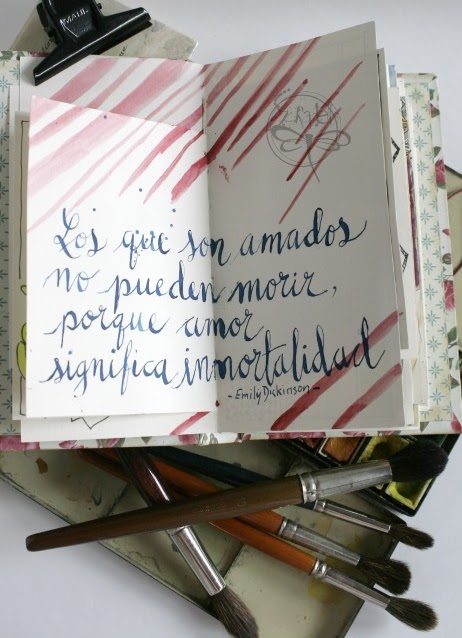 MAUL
Los que son amados
no pueden morir,
porque amor
significa inmortalidad
-Emily Dickinson-